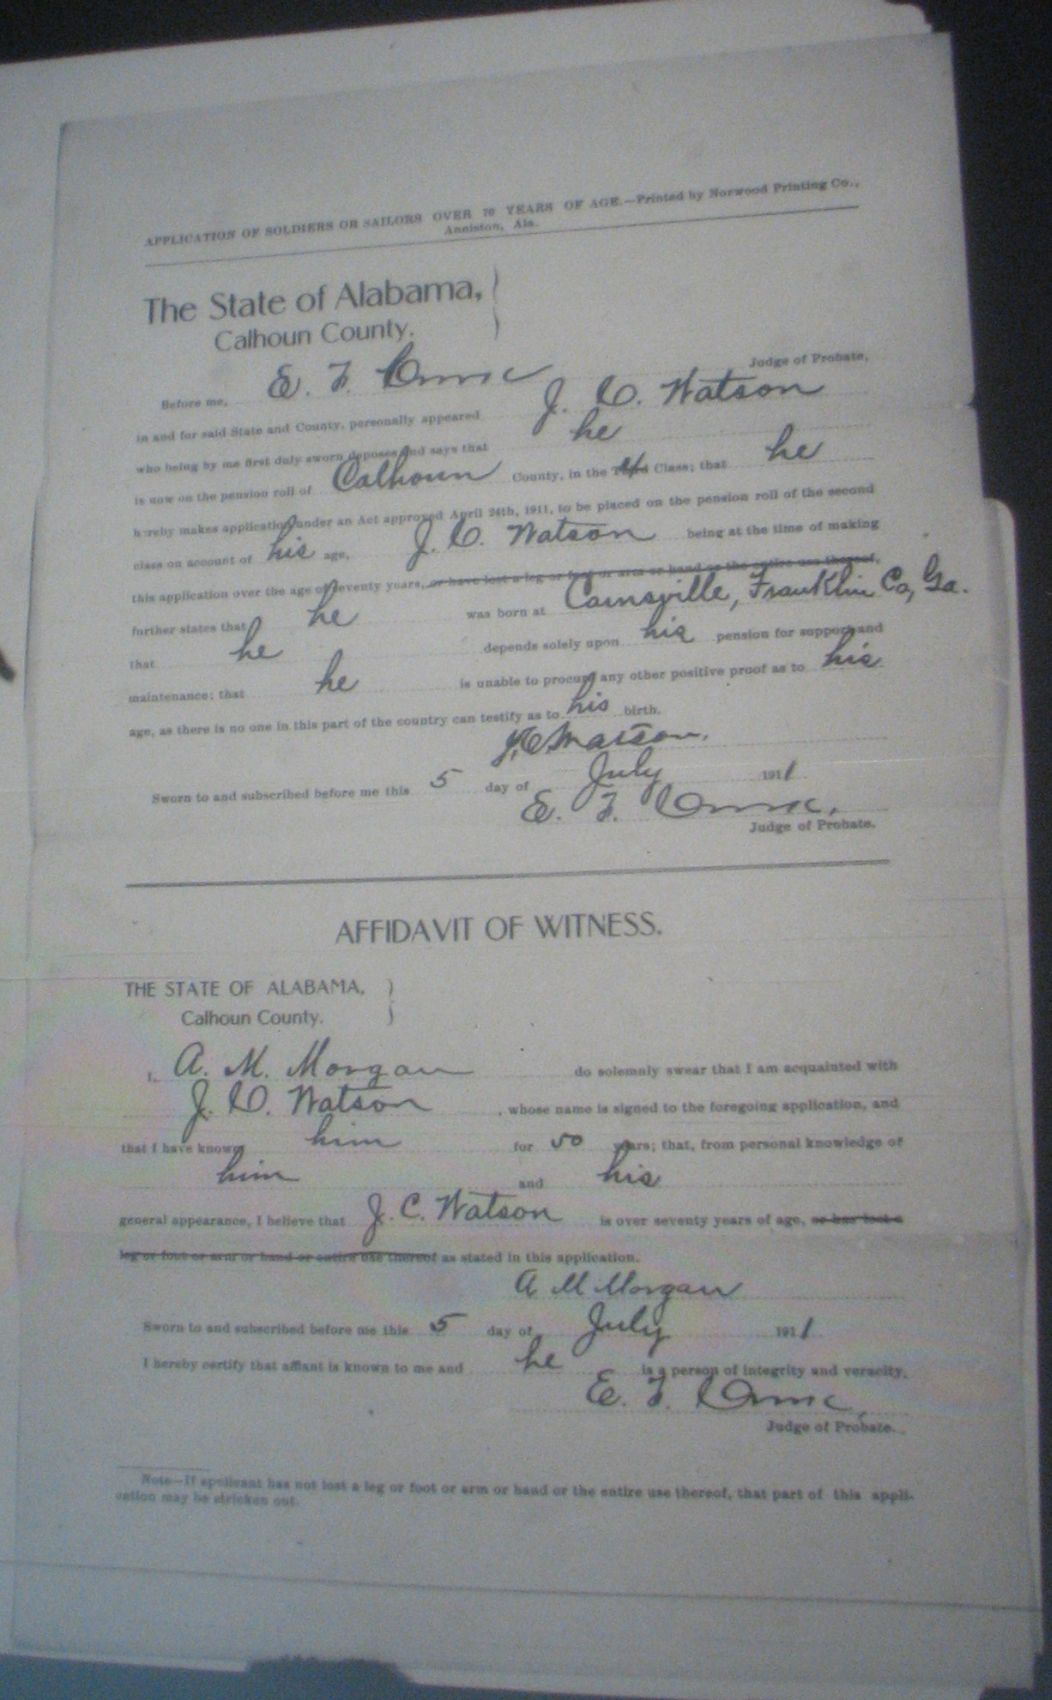 APPLICATION OF SOLDIERS OR SAILORS OVER 70 YEARS OF AGE.—Printed by Norwood Printing Co.,
Anniston, Ala.
The State of Alabama,
Calhoun County.
Before me, E. F. Judge of Probate,
in and for said State and County, personally appeared J. C. Watson
who being by me first duly sworn deposes and says that he
is now on the pension roll of Calhoun County, in the Third 4 Class; that he
hereby makes application under an Act approved April 24th, 1911, to be placed on the pension roll of the second
class on account of his age, J. C. Watson being at the time of making
this application over the age of seventy years, or have lost a leg or foot or arm or hand or the entire use thereof,
further states that he was born at Carnsville, Franklin Co, Ga.
that he depends solely upon his pension for support and
maintenance; that he is unable to procure any other positive proof as to his
age, as there is no one in this part of the country can testify as to his birth.
J. C. Watson.
Sworn to and subscribed before me this 5 day of July 1911
E. F.
Judge of Probate.
AFFIDAVIT OF WITNESS.
THE STATE OF ALABAMA,
Calhoun County.
I, A. M. Morgan do solemnly swear that I am acquainted with
J. C. Watson, whose name is signed to the foregoing application, and
that I have known him for 50 years; that, from personal knowledge of
him and his
general appearance, I believe that J. C. Watson is over seventy years of age, or has lost a
leg or foot or arm or hand or entire use thereof as stated in this application.
A M Morgan
Sworn to and subscribed before me this 5 day of July 1911
I hereby certify that affiant is known to me and he is a person of integrity and veracity.
E. F.
Judge of Probate.
Note—If applicant has not lost a leg or foot or arm or hand or the entire use thereof, that part of this appli-
cation may be stricken out.